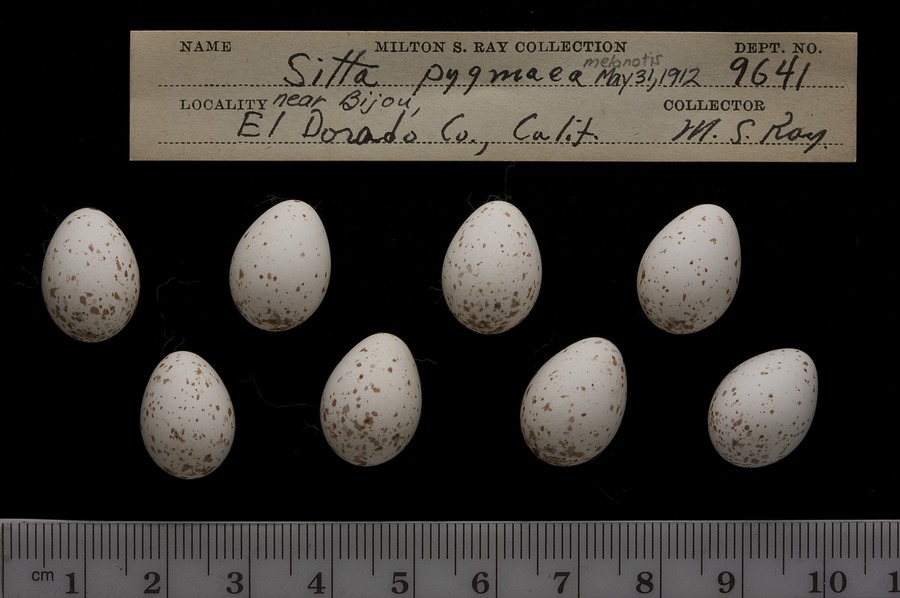 NAME MILTON S. RAY COLLECTION DEPT. NO.
Sitta pygmaea melanotis May 31, 1912 9641
LOCALITY near Bijou, COLLECTOR
El Dorado Co., Calif. M. S. Ray.
cm 1 2 3 4 5 6 7 8 9 10 1